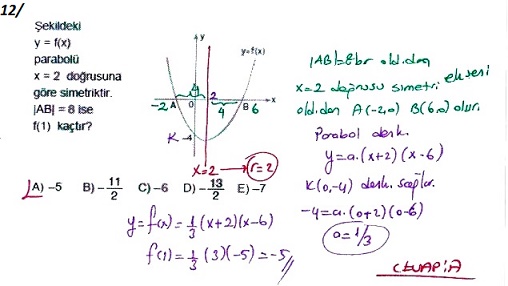 12/
Şekildeki
y = f(x)
parabolü
x = 2 doğrusuna
göre simetriktir.
|AB| = 8 ise
f(1) kaçtır?
y
y=f(x)
4
2
-2 A 0 4 B 6 x
K -4
x=2 → r=2
A) -5 B) -11/2 C) -6 D) -13/2 E) -7
y=f(x)=1/3 (x+2)(x-6)
f(1)=1/3 (3)(-5)=-5//
|AB|=8br oldğdan
x=2 doğrusu simetri ekseni
oldğdan A(-2,0) B(6,0) olur.
Parabol denk.
y=a.(x+2)(x-6)
K(0,-4) denk. sağlar.
-4=a.(0+2)(0-6)
a=1/3
CEVAP:A